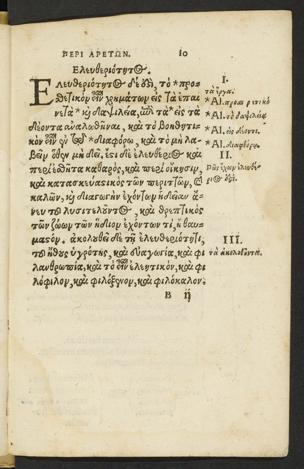 ΠΕΡΙ ΑΡΕΤΩΝ. 10
Ἐλευθεριότητος.
Ἐλευθεριότητος δέ ἐστι, τὸ *προε-
θετικὸν εἶναι χρημάτων εἰς τὰ ἐπαι-
νετὰ* καὶ δαψιλεῖα,
δέοντα ἀναλῶσαι, καὶ τὸ βοηθητι-
κὸν εἶναι ἐν τῷ *διαφόρῳ, καὶ τὸ μὴ λα-
βεῖν ὅθεν μὴ δεῖ. ἔστι δὲ ἐλευθέριος καὶ
περὶ ἐσθῆτα καθαρὸς, καὶ περὶ οἴκησιν,
καὶ κατασκευαστικὸς τῶν περιττῶν, καὶ
καλῶν, καὶ διαγωγὴν ἐχόντων ἡδεῖαν ἄ-
νευ τοῦ λυσιτελοῦντος, καὶ θρεπτικὸς
τῶν ζώων τῶν ἴδιον ἐχόντων τι, ἢ θαυ-
μαστόν. ἀκολουθεῖ δὲ τῇ ἐλευθεριότητι,
τοῦ ἤθους ὑγρότης, καὶ εὐαγωγία, καὶ φι-
λανθρωπία, καὶ τὸ εἶναι ἐλεητικὸν, καὶ φι-
λόφιλον, καὶ φιλόξενον, καὶ φιλόκαλον.
B ij
I.
τὰ ἔργα.
*Αλ. προετικὸ
*Αλ. τὸ δαψιλὲς
*Αλ. εἰς δέοντι.
*Αλ. διαφόρῳ.
II.
III.
τὰ ἀκόλουθα.